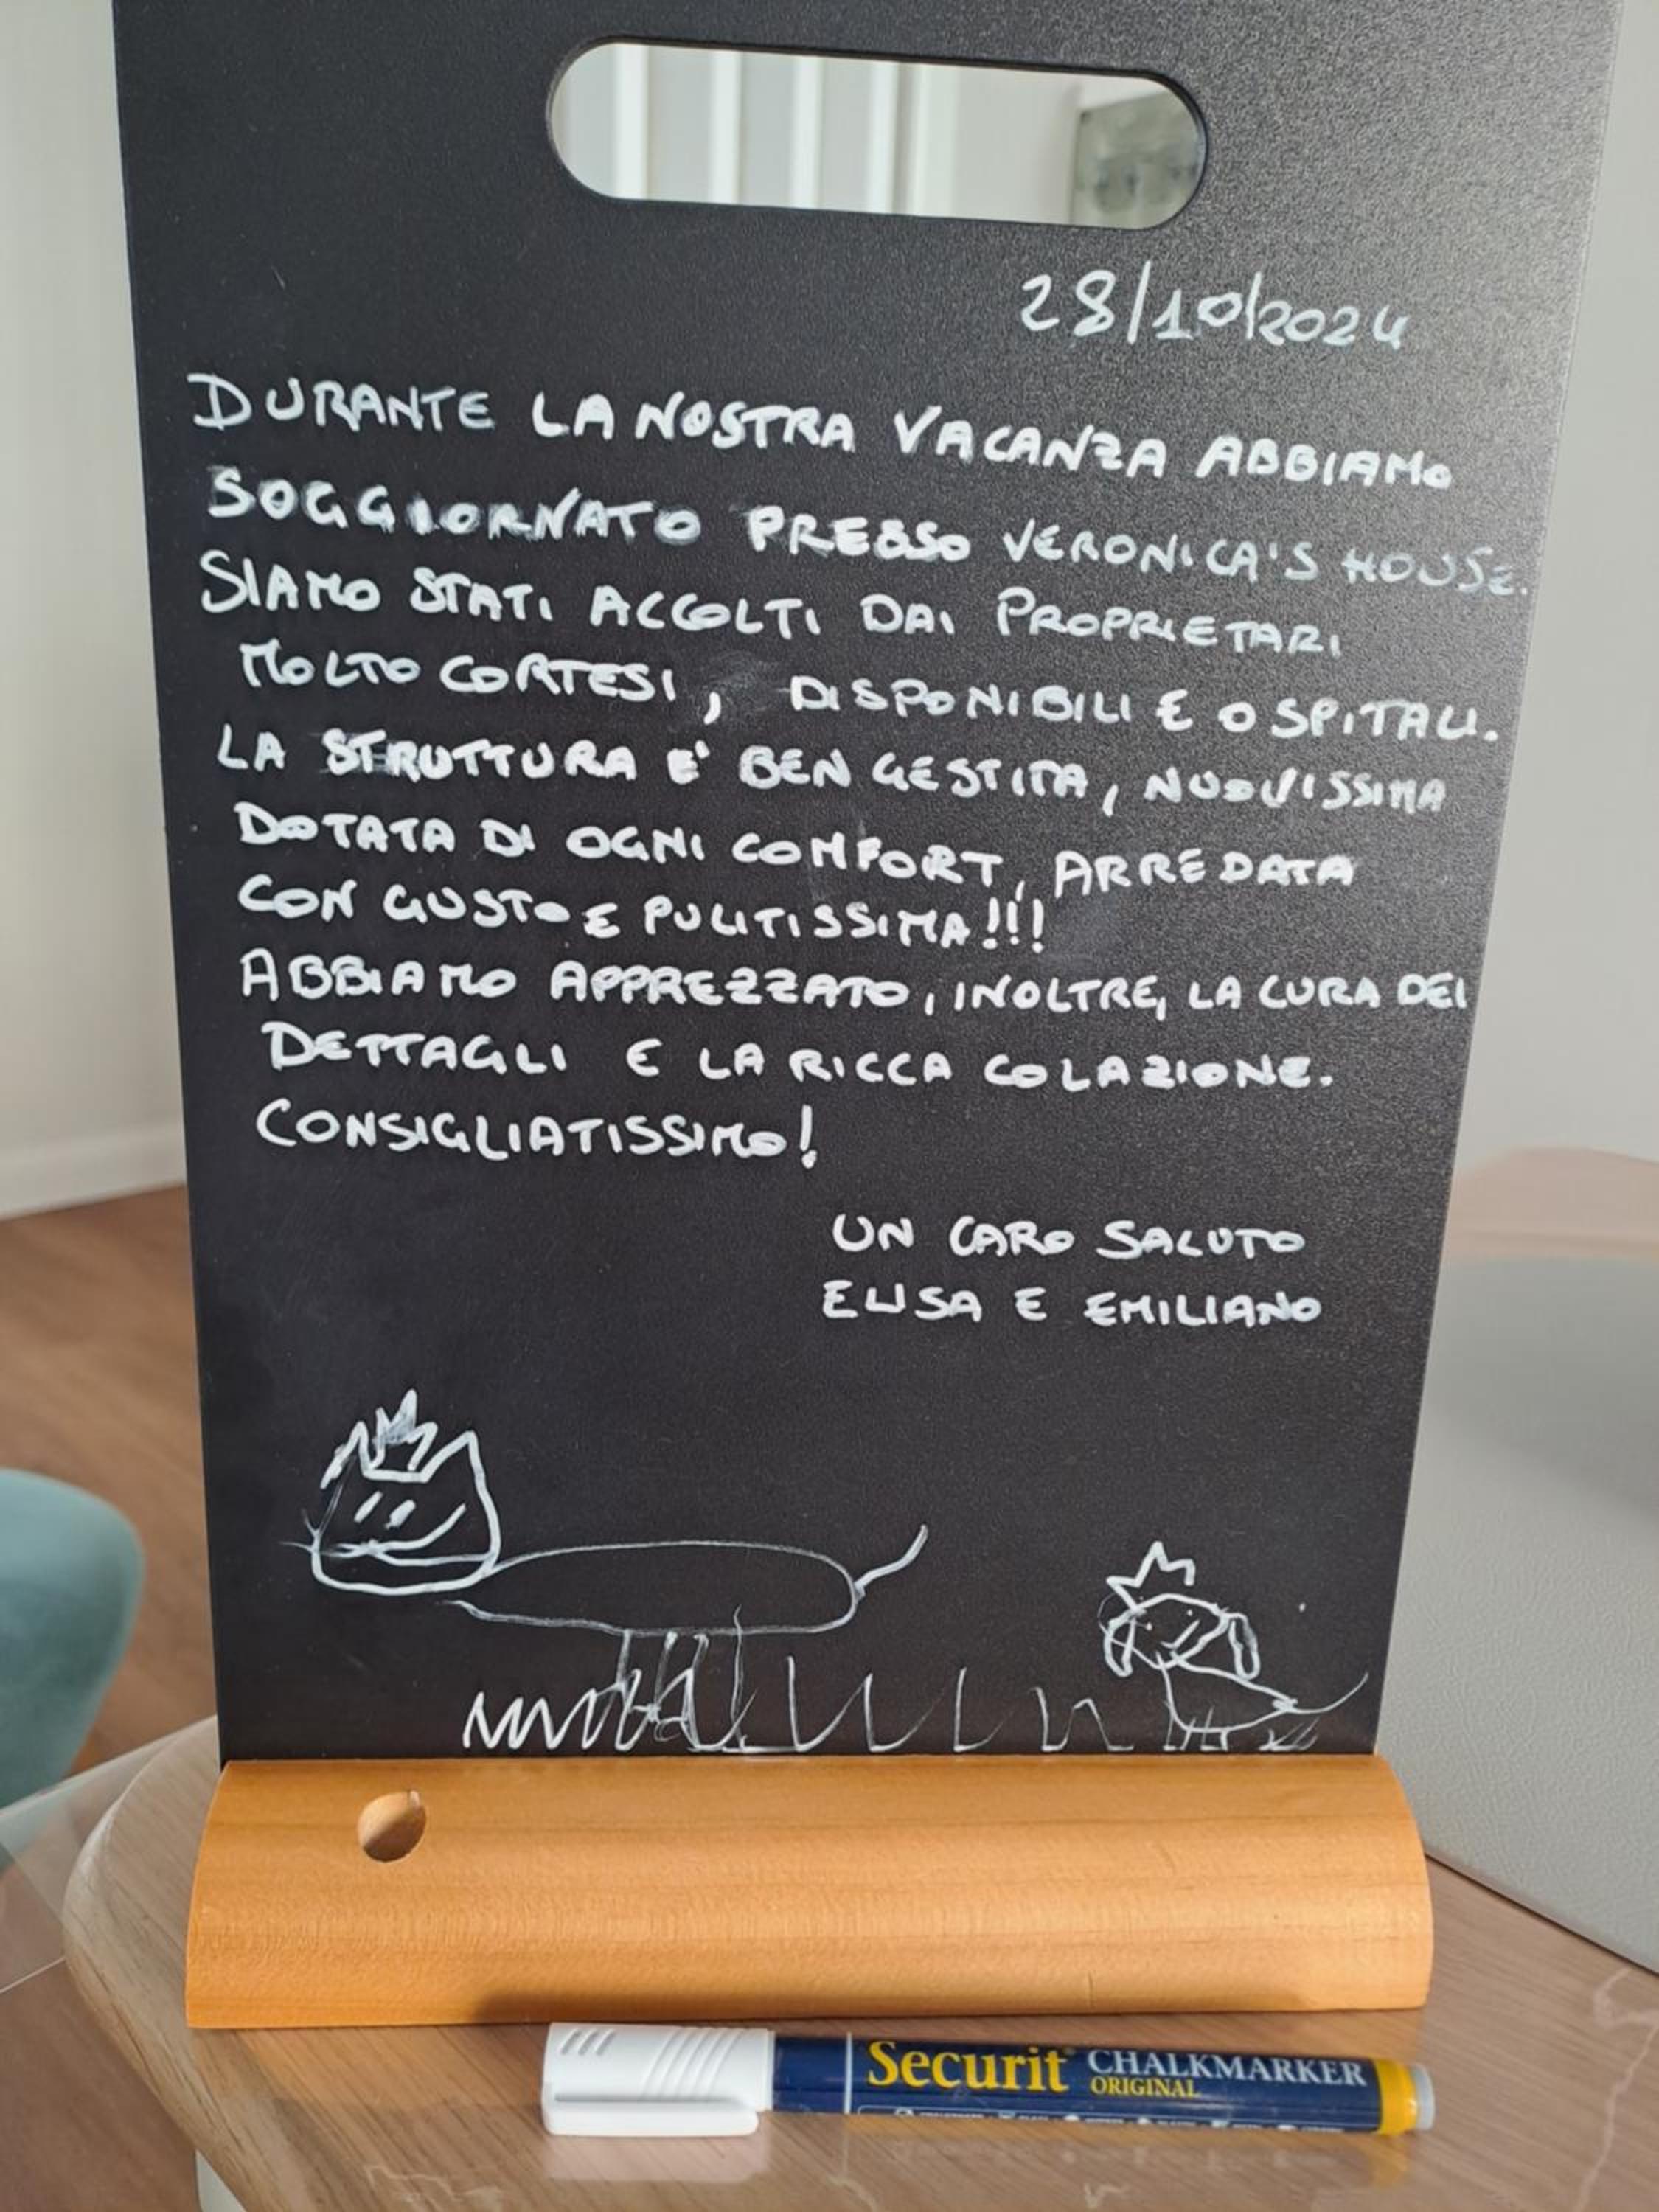 28/10/2024
DURANTE LA NOSTRA VACANZA ABBIAMO
SOGGIORNATO PRESSO VERONICA'S HOUSE.
SIAMO STATI ACCOLTI DAI PROPRIETARI
MOLTO CORTESI, DISPONIBILI E OSPITALI.
LA STRUTTURA E' BEN GESTITA, NUOVISSIMA
DOTATA DI OGNI COMFORT, ARREDATA
CON GUSTO E PULITISSIMA!!!
ABBIAMO APPREZZATO, INOLTRE, LA CURA DEI
DETTAGLI E LA RICCA COLAZIONE.
CONSIGLIATISSIMO!
UN CARO SALUTO
ELISA E EMILIANO
Securit CHALKMARKER
ORIGINAL